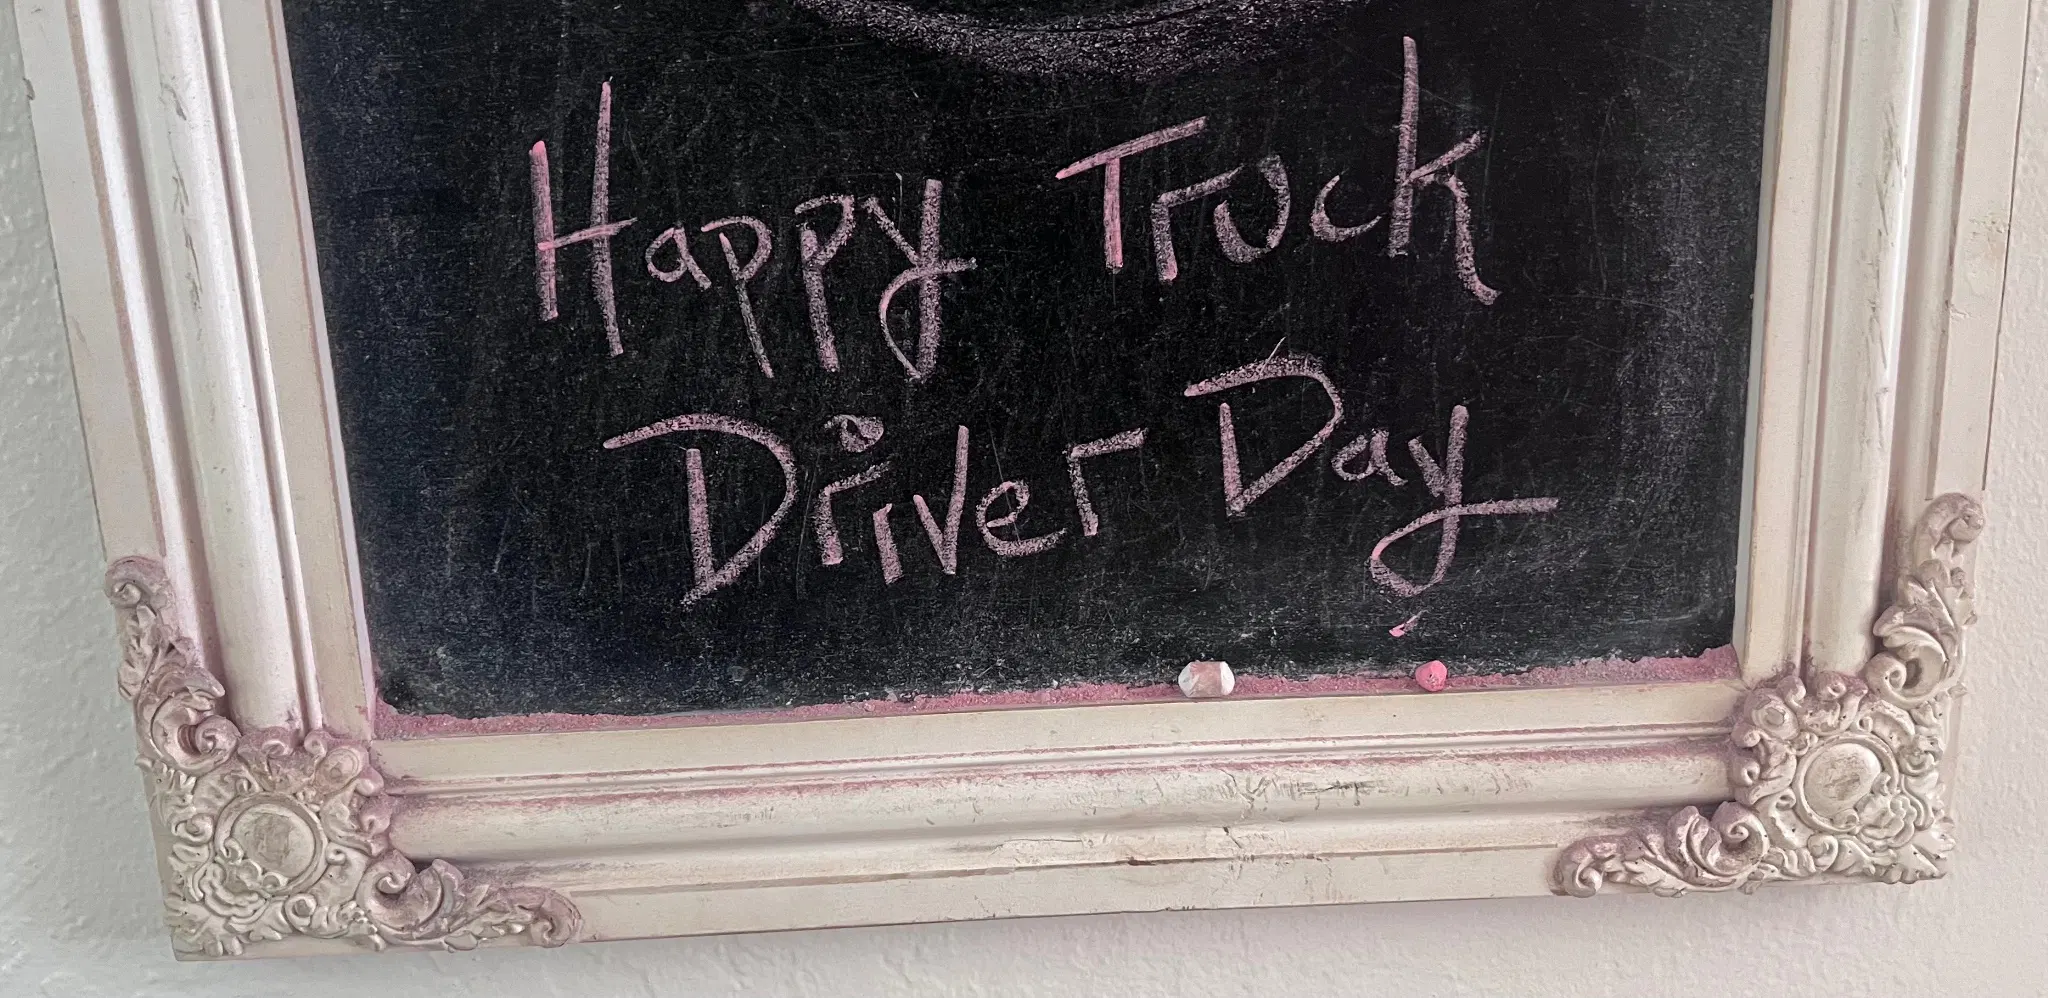 Happy Truck
Driver Day